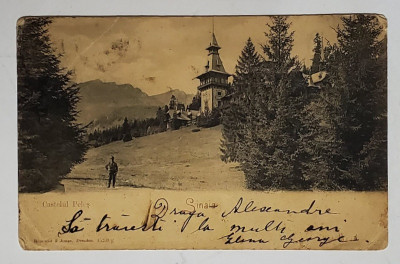 Castelul Peleș
Sinaia
Draga Alexandre
Să trăiești la mulți ani
Elena George